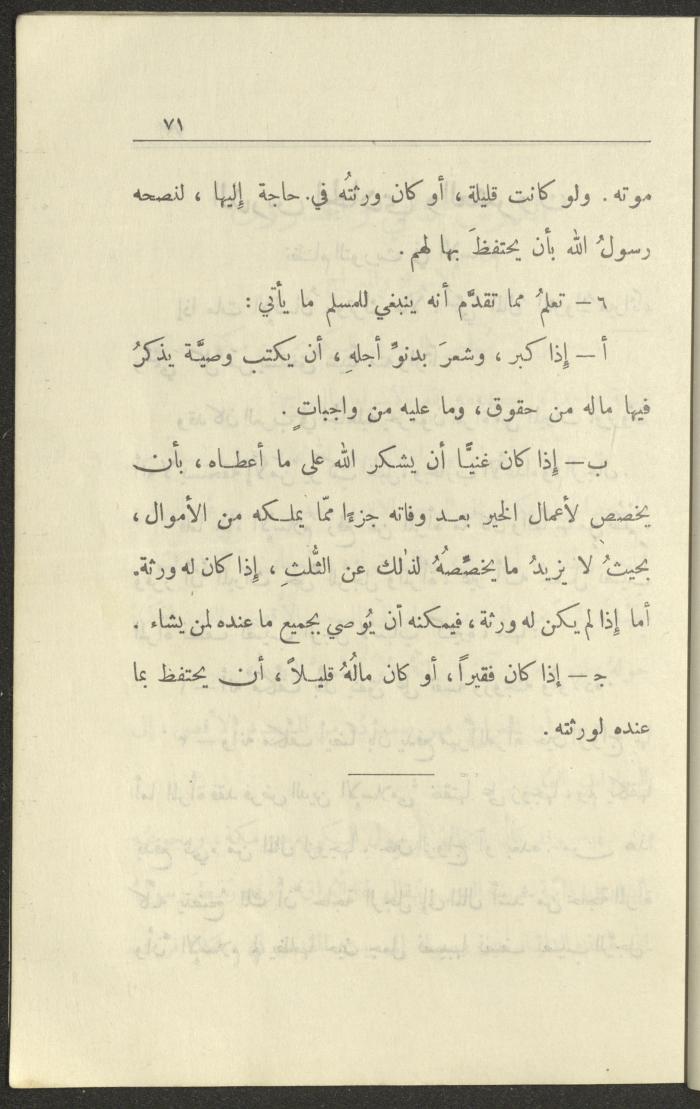 ٧١
موته . ولو كانت قليلة ، أو كان ورثتُه في حاجة إِليها ، لنصحه
رسولُ الله بأن يحتفظَ بها لهم .
٦ – تعلمُ مما تقدَّم أنه ينبغي للمسلم ما يأتي :
أ – إِذا كبر ، وشعرَ بدنوِّ أجلهِ ، أن يكتب وصيَّة يذكرُ
فيها ماله من حقوق ، وما عليه من واجباتٍ .
ب – إِذا كان غنيًّا أن يشكر الله على ما أعطاه ، بأن
يخصص لأعمال الخير بعد وفاته جزءًا ممّا يملكه من الأموال ،
بحيثُ لا يزيدُ ما يخصِّصُهُ لذلك عن الثُّلثِ ، إِذا كان له ورثة .
أما إِذا لم يكن له ورثة ، فيمكنه أن يُوصي بجميع ما عنده لمن يشاء .
ج – إذا كان فقيراً ، أو كان مالُهُ قليلاً ، أن يحتفظ بما
عنده لورثته .